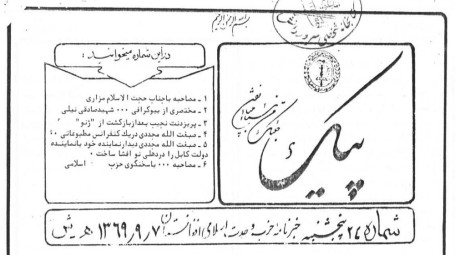 بسم الله الرحمن الرحیم
دراین شماره میخوانید :
۱ ـ مصاحبه باجناب حجت الاسلام مزاری
۲ ـ مختصری از بیوگرافی ۰۰۰ شهیدصادقی نیلی
۳ ـ پریزدنت نجیب بعدازبازگشت از "ژنو"
۴ ـ صبغت الله مجددی دریك كنفرانس مطبوعاتی
۵ ـ صبغت الله مجددی دیدارنماینده خود بانماینده
دولت كابل رادردهلی نو افشا ساخت ۰
۶ ـ مصاحبه ۰۰۰ باسخنگوی حزب اسلامی
پیک
شماره ۲۴ پنجشنبه خبرنامه حزب وحدت اسلامی افغانستان ۱۳۶۹/۹/۷ هـ ش